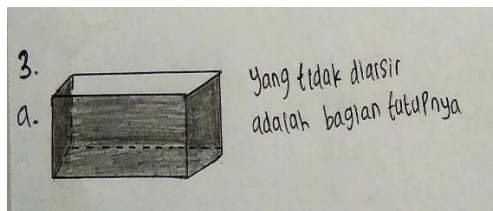 3.
a.
yang tidak diarsir
adalah bagian tutupnya